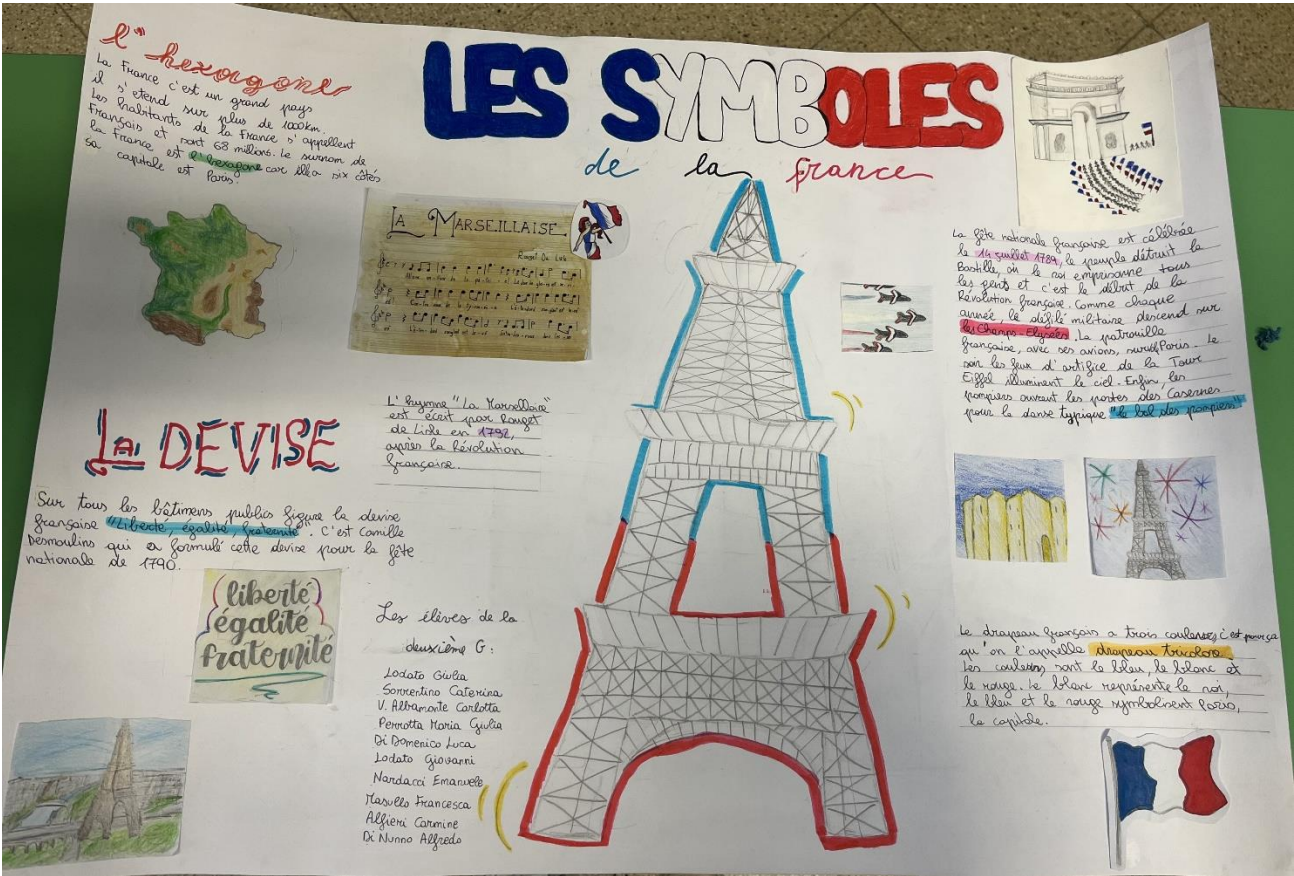 LES SYMBOLES
de la france
l'hexagone
La France c'est un grand pays
il s'étend sur plus de 1000km.
Les habitants de la France s'appellent
Français et sont 68 millions. Le surnom de
la France est l'hexagone car ella six côtés
sa capitale est Paris.
LA MARSEILLAISE
Rouget De Lisle
L'hymne "La Marsellaise"
est écrit par Rouget
de Lisle en 1792,
après la Révolution
française.
LA DEVISE
Sur tous les bâtimens publics figure la devise
française "Liberté, égalité, fraternité". C'est Camille
Desmoulins qui a formulé cette devise pour la fête
nationale de 1790.
liberté
égalité
fraternité
Les élèves de la
deuxième G:
Lodato Giulia
Sorrentino Caterina
V. Albamonte Carlotta
Perrotta Maria Giulia
Di Domenico Luca
Lodato Giovanni
Nardacci Emanuele
Masullo Francesca
Alfieri Carmine
Di Nunno Alfredo
La fête nationale française est célébrée
le 14 juillet 1789, le peuple détruit la
Bastille, où le roi emprisonne tous
les gents et c'est le début de la
Révolution française. Comme chaque
année, le défilé militaire descend sur
les Champs-Elysées. La patrouille
française, avec ses avions, Paris. Le
soir les feux d'artifice de la Tour
Eiffel illuminent le ciel. Enfin, les
pompiers ouvrent les portes des Casernes
pour la danse typique "le bal des pompiers"
Le drapeau français a trois couleurs, c'est pour ça
qu'on l'appelle drapeau tricolore.
Les couleurs sont le bleu, le blanc et
le rouge. Le blanc représente le roi,
le bleu et le rouge symbolisent Paris,
la capitale.